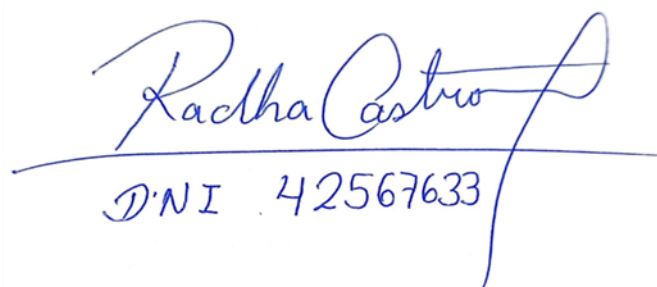 Radha Castro
D.N I 42567633